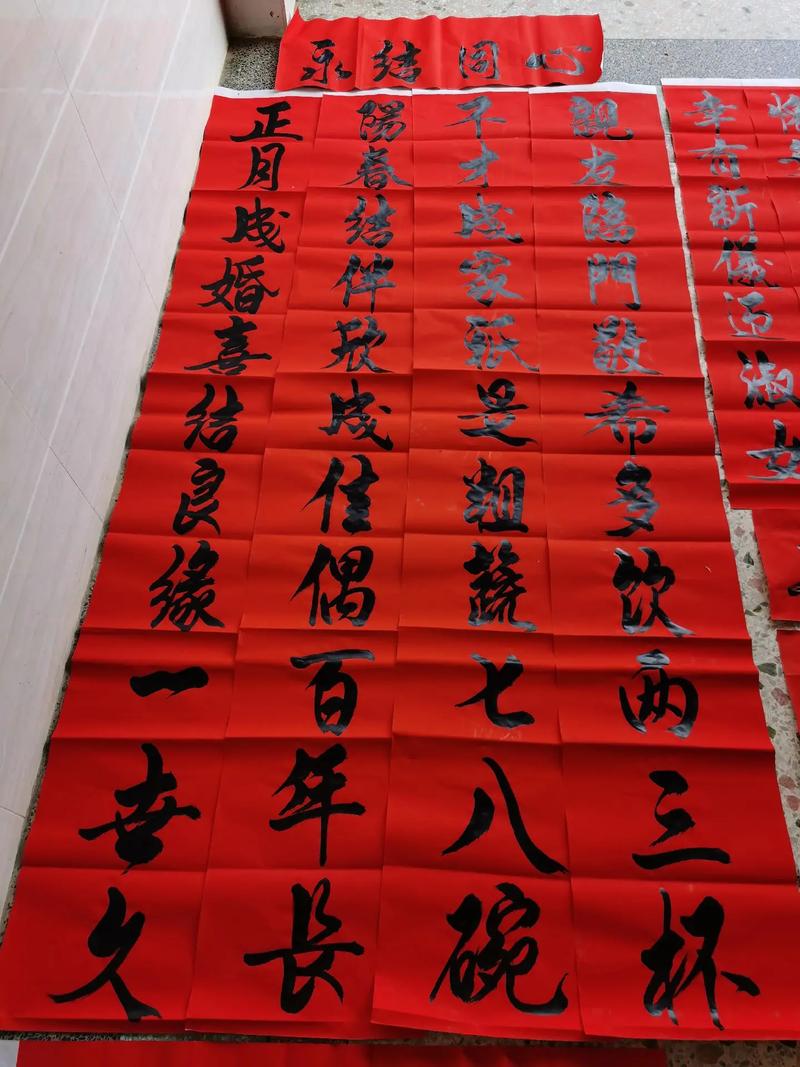 永结同心
正月成婚喜结良缘一世久
陽春结伴欣成佳偶百年長
不才成家祇是粗蔬七八碗
親友臨門敬希多饮两三杯
幸有新儀迎淑女